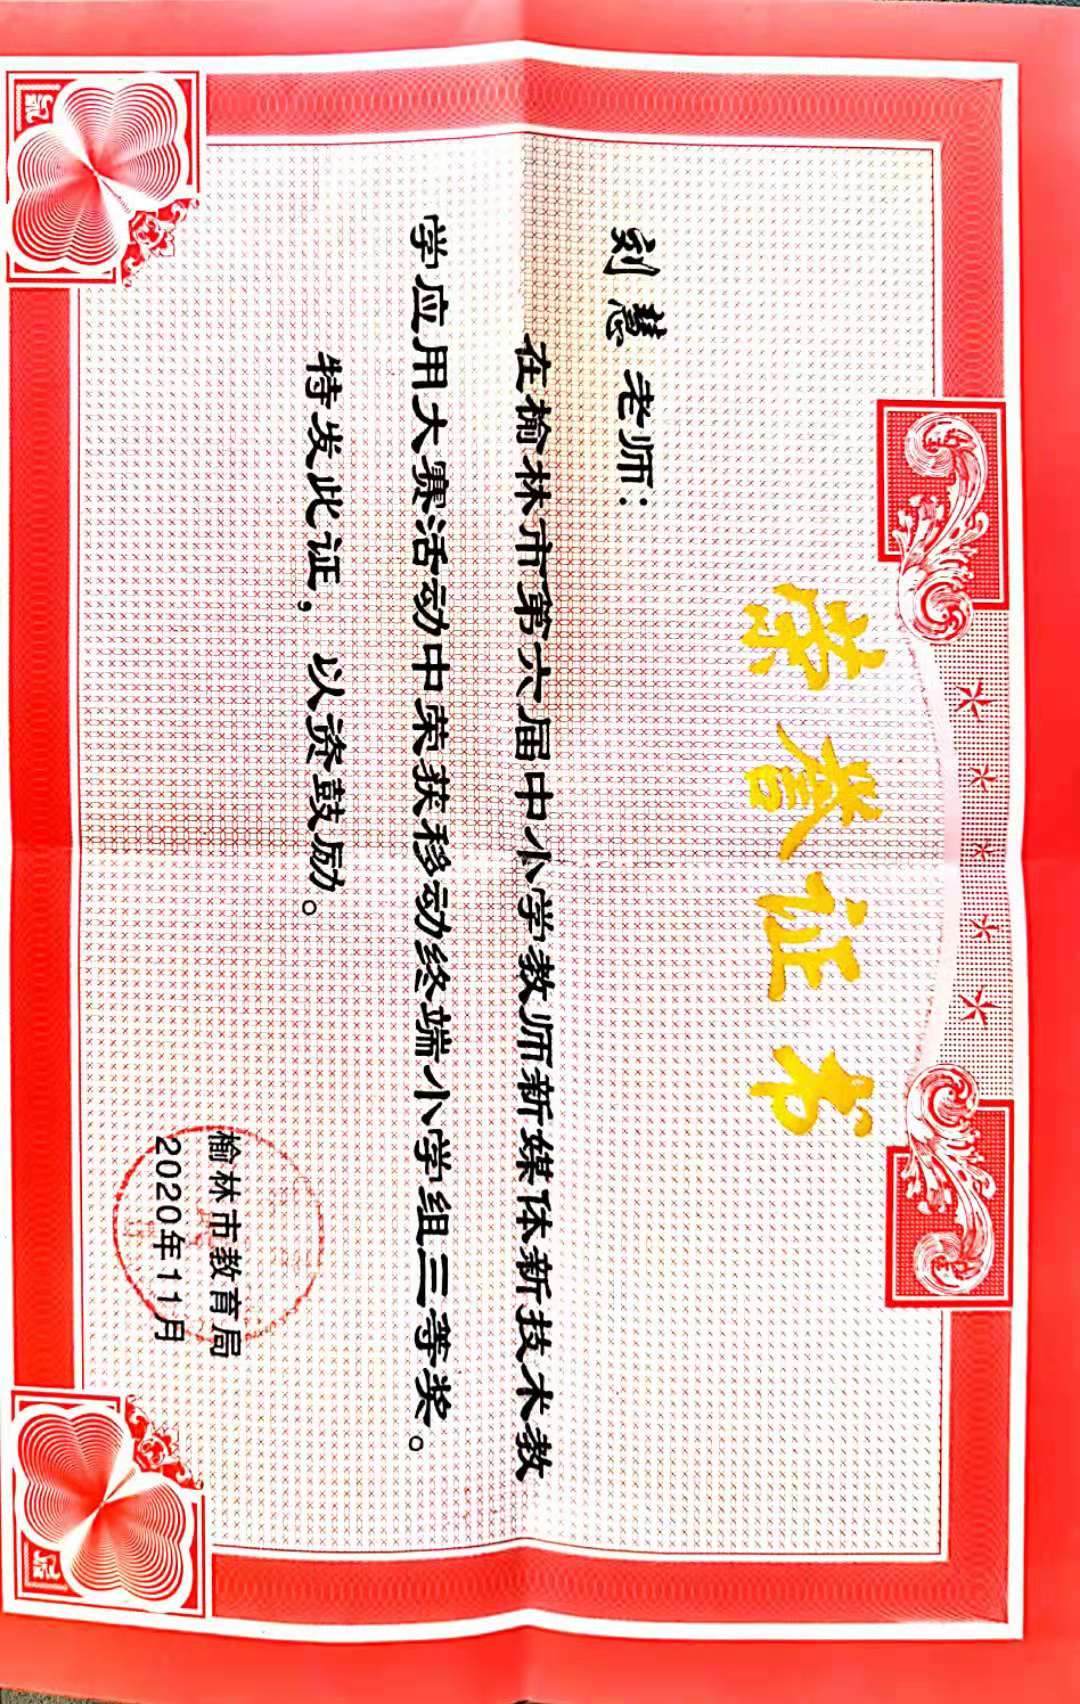 荣誉证书
刘慧老师：
在榆林市第六届中小学教师新媒体新技术教
学应用大赛活动中荣获移动终端小学组三等奖。
特发此证，以资鼓励。
榆林市教育局
2020年11月